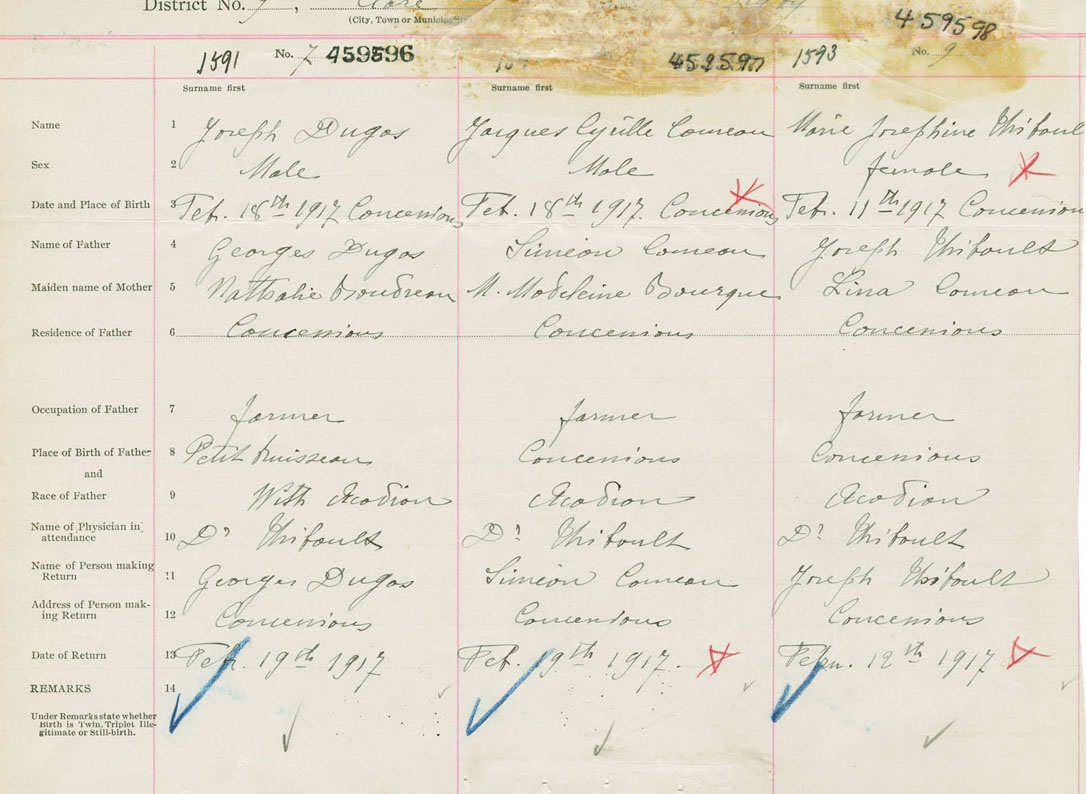 District No. 7, Clare
(City, Town or Munici
1591 No. 7 459596 459597 1593 No. 9 459598
Surname first Surname first Surname first
Name 1 Joseph Dugas Jacques Cyrille Comeau Marie Josephine Thibault
Sex 2 Male Male female
Date and Place of Birth 3 Feb. 18th 1917 Concessions Feb. 18th 1917 Concessions Feb. 11th 1917 Concession
Name of Father 4 Georges Dugas Siméon Comeau Joseph Thibault
Maiden name of Mother 5 Nathalie Boudreau M. Madeleine Bourque Lina Comeau
Residence of Father 6 Concessions Concessions Concessions
Occupation of Father 7 farmer farmer farmer
Place of Birth of Father 8 Petit Ruisseau Concessions Concessions
and
Race of Father 9 With Acadian Acadian Acadian
Name of Physician in attendance 10 Dr Thibault Dr Thibault Dr Thibault
Name of Person making Return 11 Georges Dugas Siméon Comeau Joseph Thibault
Address of Person making Return 12 Concessions Concessions Concessions
Date of Return 13 Feb. 19th 1917 Feb. 19th 1917. 12th 1917
REMARKS 14
Under Remarks state whether
Birth is Twin, Triplet Ille-
gitimate or Still-birth.